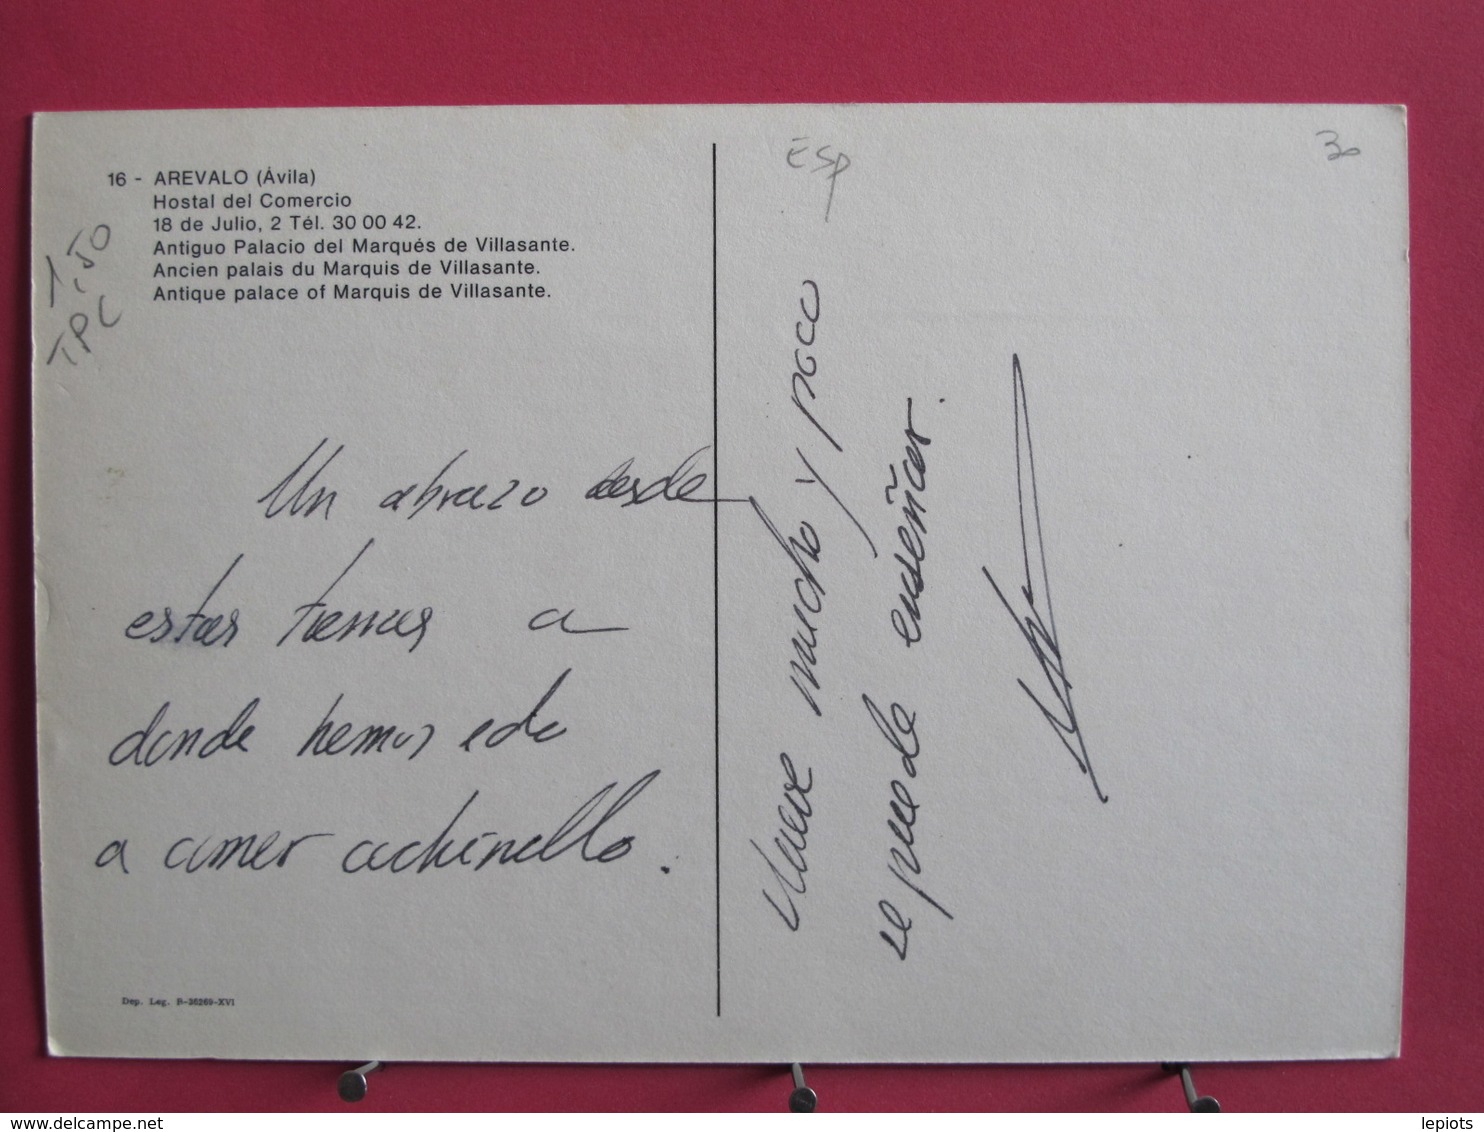 16 - AREVALO (Ávila)
Hostal del Comercio
18 de Julio, 2 Tél. 30 00 42.
Antiguo Palacio del Marqués de Villasante.
Ancien palais du Marquis de Villasante.
Antique palace of Marquis de Villasante.
1,50
TPL
ESP
30
Un abrazo desde
estas tierras a
donde hemos
a comer cochinillo.
Llueve mucho y poco
se puede enseñar.
Dep. Leg. B-36269-XVI
delcampe.net
lepiots